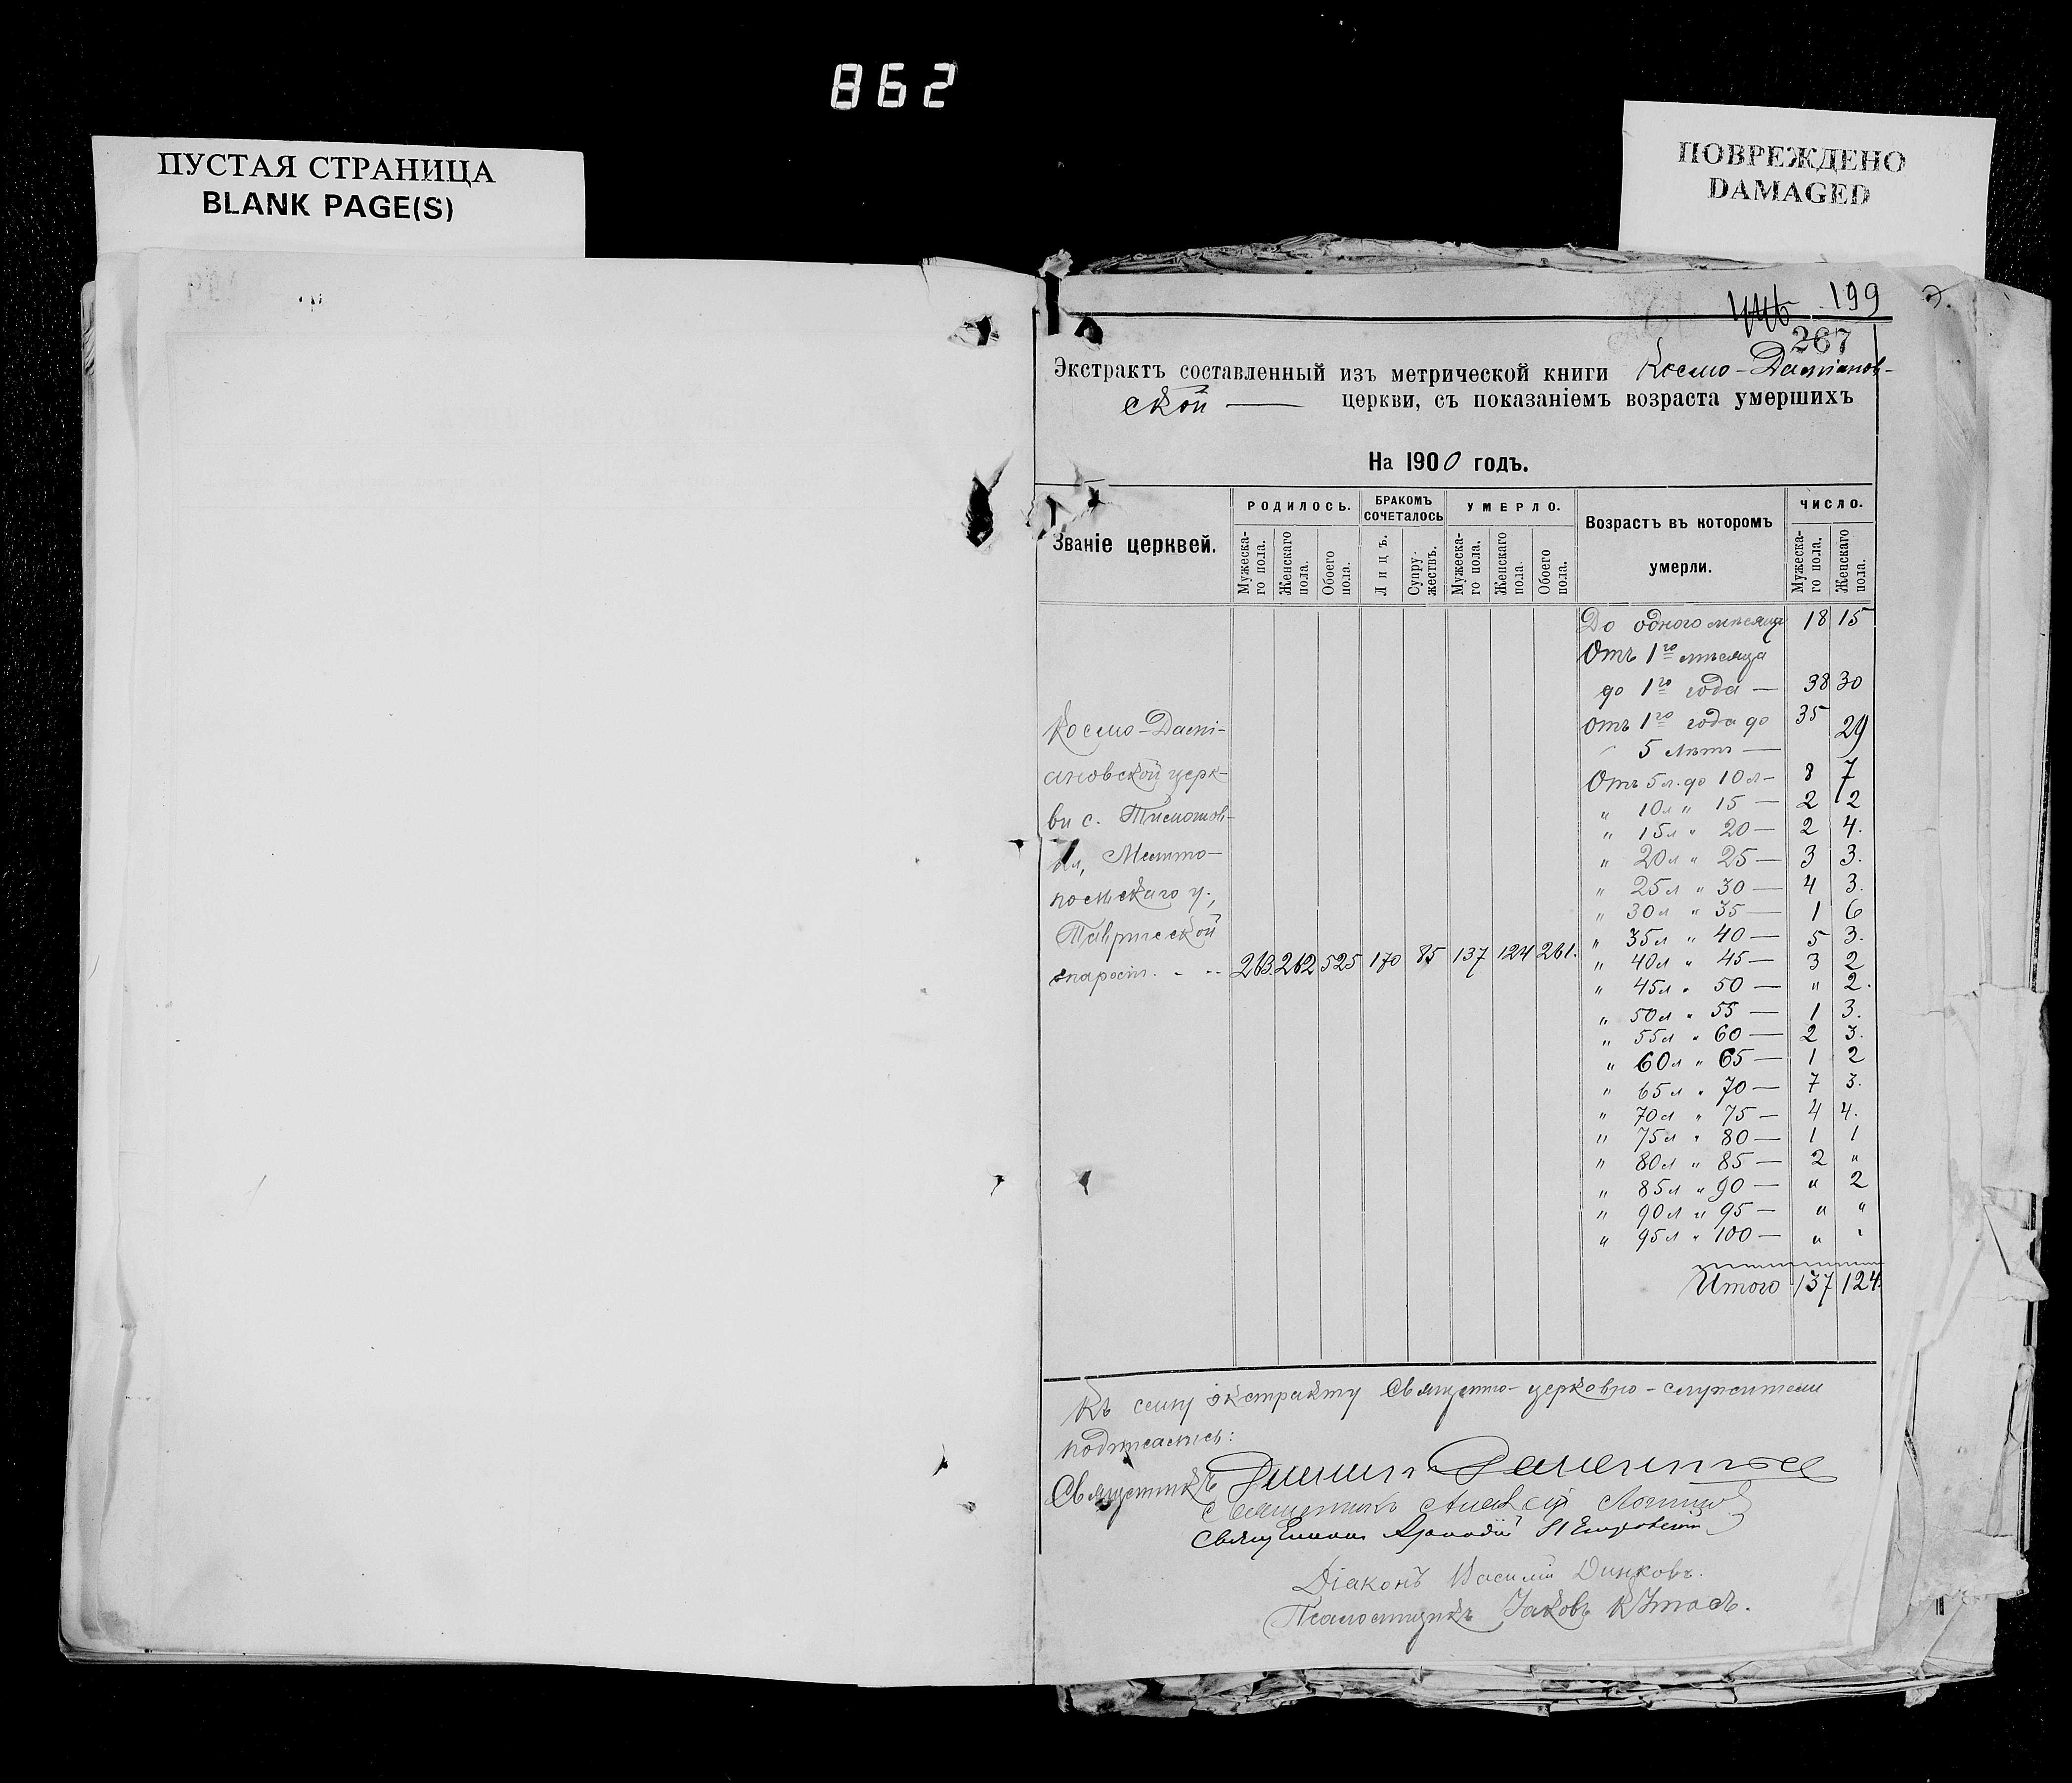 862
ПУСТАЯ СТРАНИЦА
BLANK PAGE(S)
ПОВРЕЖДЕНО
DAMAGED
199
267
Экстрактъ составленный изъ метрической книги Космо-Даміанов-
ской — церкви, съ показаніемъ возраста умершихъ
На 1900 годъ.
Званіе церквей.
РОДИЛОСЬ.
БРАКОМЪ СОЧЕТАЛОСЬ
УМЕРЛО.
Возрастъ въ которомъ умерли.
ЧИСЛО.
Мужеска-го пола.
Женскаго пола.
Обоего пола.
Лицъ.
Супру-жествъ.
Мужеска-го пола.
Женскаго пола.
Обоего пола.
Мужеска-го пола.
Женскаго пола.
До одного мѣсяца 18 15
Отъ 1го мѣсяца
до 1го года — 38 30
Отъ 1го года до 35 29
5 лѣтъ —
Отъ 5 л. до 10 л — 8 7
" 10 л " 15 — 2 2
" 15 л " 20 — 2 4.
" 20 л " 25 — 3 3.
" 25 л " 30 — 4 3.
" 30 л " 35 — 1 6
" 35 л " 40 — 5 3.
" 40 л " 45 — 3 2
" 45 л " 50 — " 2.
" 50 л " 55 — 1 3.
" 55 л " 60 — 2 3.
" 60 л " 65 — 1 2
" 65 л " 70 — 7 3.
" 70 л " 75 — 4 4.
" 75 л " 80 — 1 1
" 80 л " 85 — 2 "
" 85 л " 90 — " 2
" 90 л " 95 — " "
" 95 л " 100 — " "
Итого 137 124.
Космо-Дамі-
ановской церк-
ви с.
Мелито-
польскаго у.,
Таврической
епархіи. - -- 263. 262 525 170 85 137 124 261.
Къ сему экстракту Священно-церковно-служители
подписались:
Священникъ
Священникъ Алексій
Священникъ
Діаконъ Василій Динковъ.
Псаломщикъ Іаковъ